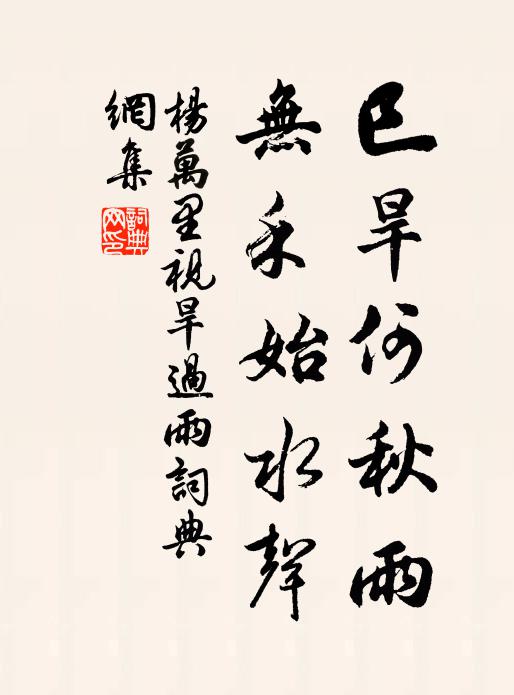 已旱何秋雨
無禾始水聲
楊萬里視旱過雨詞典
網集
詞典網印